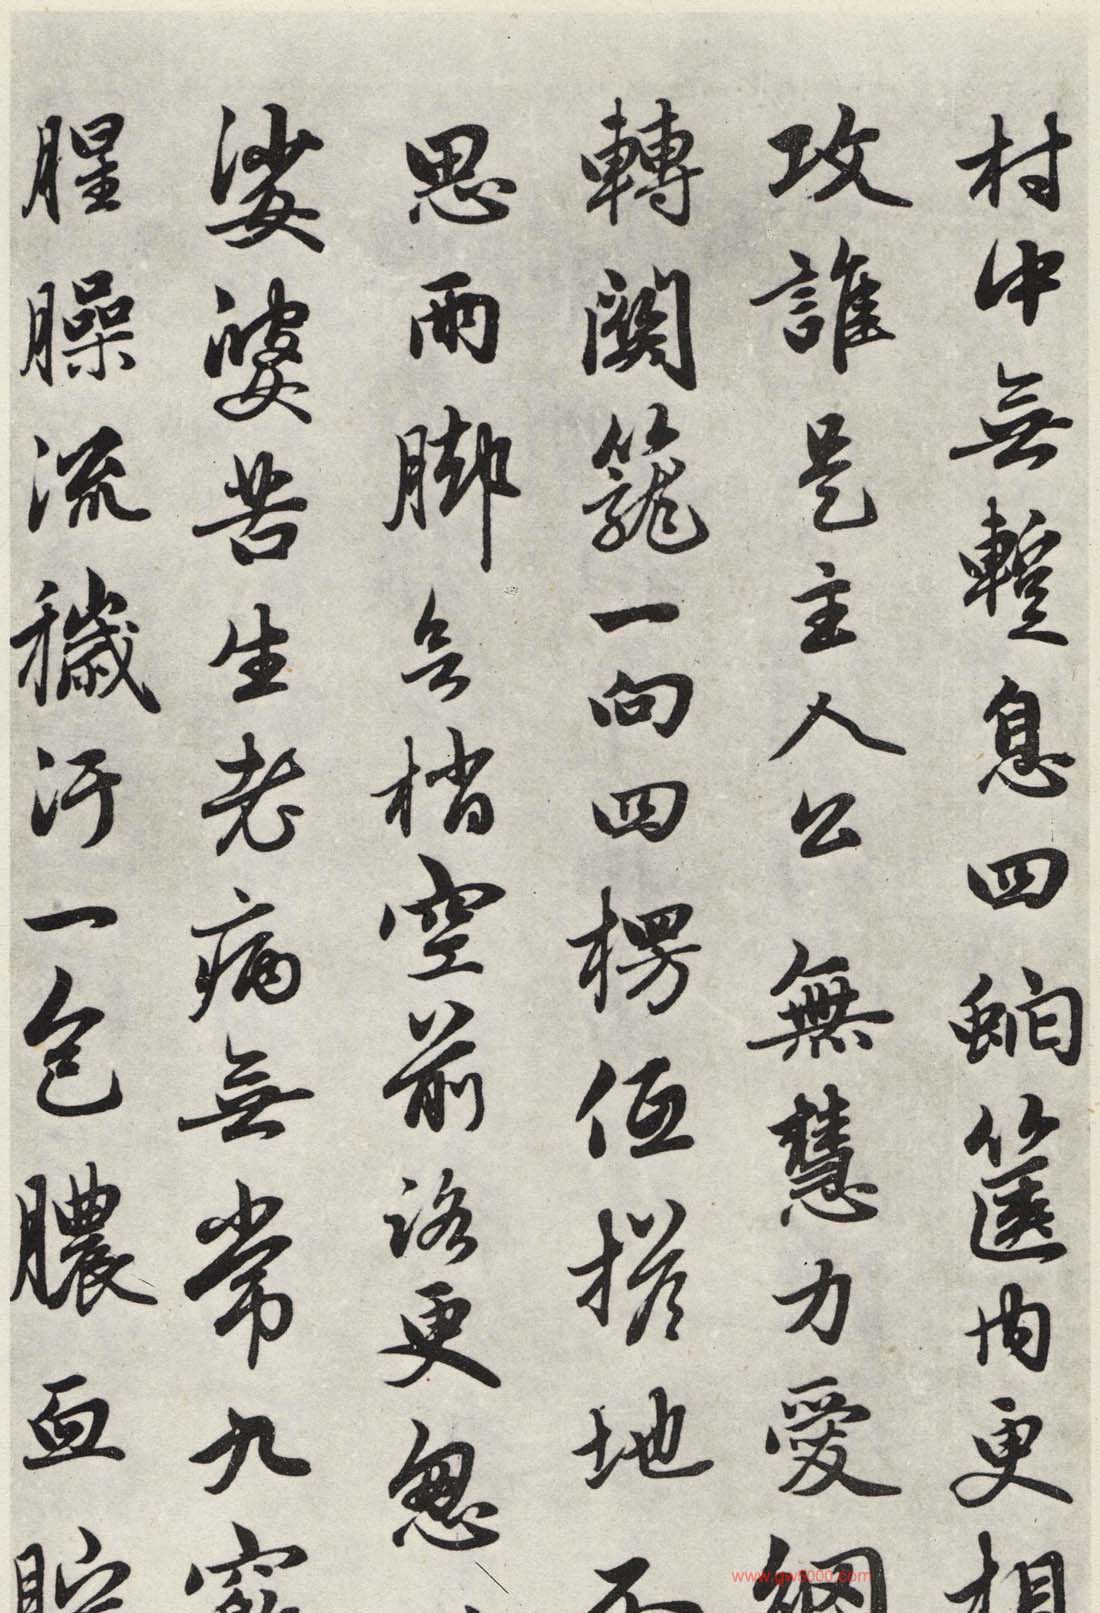 村中無蹔息四虵篋内更相
攻誰是主人公無慧力愛網
轉關籠一向四楞但搽地不
思兩脚無梢空前路更忽
娑婆苦生老病無常九竅
腥臊流穢汙一包膿血腔
www.gw5000.com